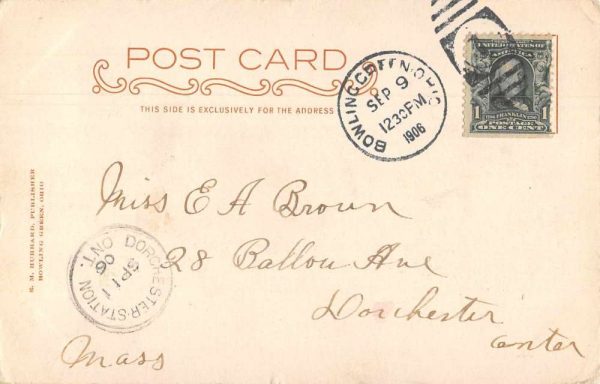 POST CARD
THIS SIDE IS EXCLUSIVELY FOR THE ADDRESS
BOWLING GREEN OHIO
SEP 9
1230PM
1906
UNITED STATES OF AMERICA
FRANKLIN
1 POSTAGE 1
ONE CENT
Miss E A Brown
28 Ballou Ave
Dorchester
Center
Mass
DORCHESTER STATION
06
S. M. HUBBARD, PUBLISHER
BOWLING GREEN, OHIO